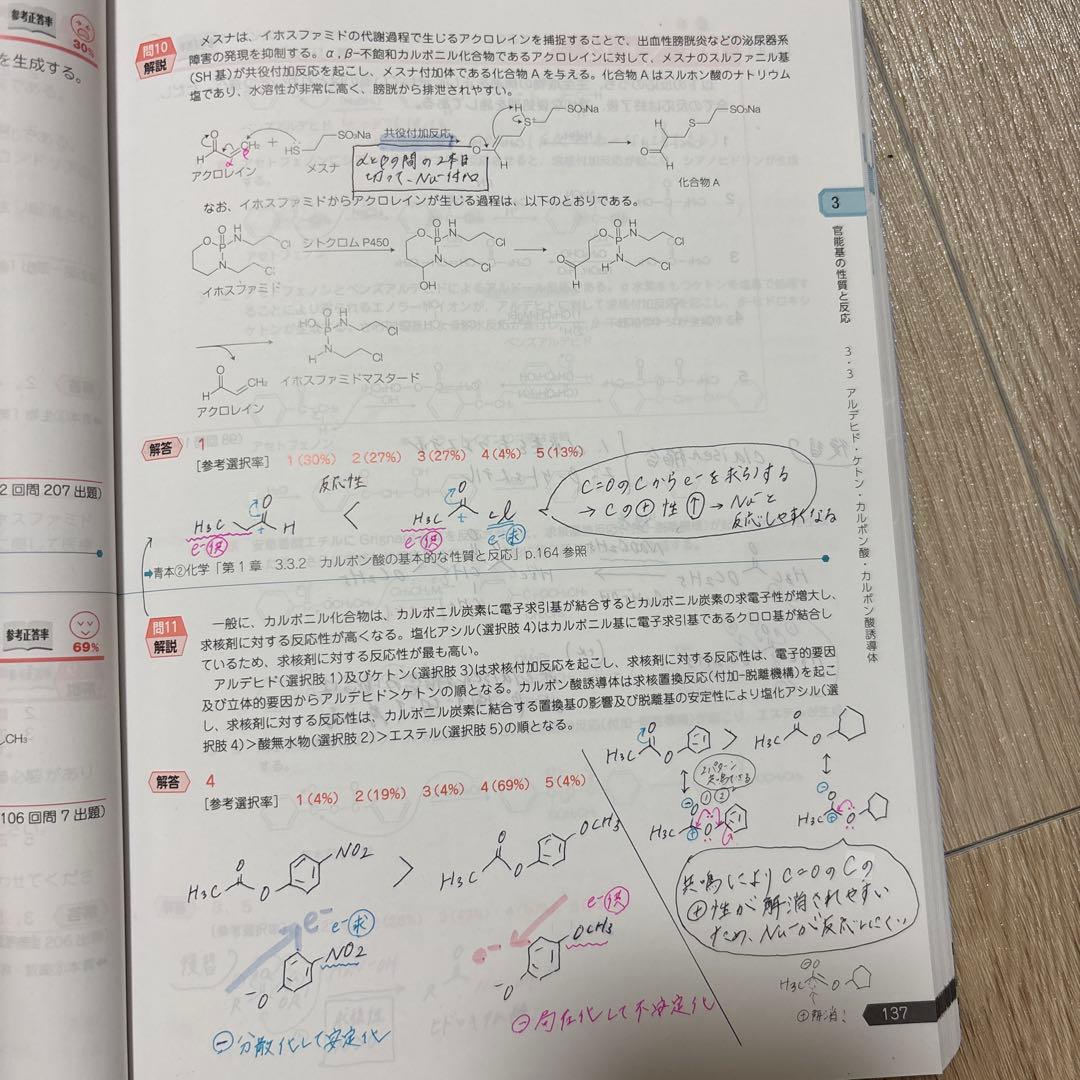 参考正答率
30%
を生成する。
2回問 207 出題)
参考正答率
69%
CH₃
106 回問 7 出題)
問10
解説
メスナは、イホスファミドの代謝過程で生じるアクロレインを捕捉することで、出血性膀胱炎などの泌尿器系
障害の発現を抑制する。α,β-不飽和カルボニル化合物であるアクロレインに対して、メスナのスルファニル基
(SH 基)が共役付加反応を起こし、メスナ付加体である化合物 A を与える。化合物 A はスルホン酸のナトリウム
塩であり、水溶性が非常に高く、膀胱から排泄されやすい。
O H CH₂ + HS SO₃Na 共役付加反応 O H S⁺ H SO₃Na O H S SO₃Na
α β
αとβの間の2本目
切って、Nu⁻付加
アクロレイン メスナ 化合物 A
なお、イホスファミドからアクロレインが生じる過程は、以下のとおりである。
O P O H N Cl N Cl シトクロム P450 O P O H N Cl N Cl OH O H O P O H N Cl N H Cl
イホスファミド
HO P O H N Cl N H Cl
イホスファミドマスタード
O H CH₂
アクロレイン
解答 1
[参考選択率] 1(30%) 2(27%) 3(27%) 4(4%) 5(13%)
反応性
H₃C O H < H₃C O Cl
e⁻供 e⁻供 e⁻求
C=OのCからe⁻を求引する
→Cの⊕性↑→Nu⁻と
反応しやすくなる
➡青本②化学「第 1 章 3.3.2 カルボン酸の基本的な性質と反応」p.164 参照
問11
解説
一般に、カルボニル化合物は、カルボニル炭素に電子求引基が結合するとカルボニル炭素の求電子性が増大し、
求核剤に対する反応性が高くなる。塩化アシル(選択肢 4)はカルボニル基に電子求引基であるクロロ基が結合し
ているため、求核剤に対する反応性が最も高い。
アルデヒド(選択肢 1)及びケトン(選択肢 3)は求核付加反応を起こし、求核剤に対する反応性は、電子的要因
及び立体的要因からアルデヒド>ケトンの順となる。カルボン酸誘導体は求核置換反応(付加-脱離機構)を起こ
し、求核剤に対する反応性は、カルボニル炭素に結合する置換基の影響及び脱離基の安定性により塩化アシル(選
択肢 4)>酸無水物(選択肢 2)>エステル(選択肢 5)の順となる。
解答 4
[参考選択率] 1(4%) 2(19%) 3(4%) 4(69%) 5(4%)
H₃C O O NO₂ > H₃C O O OCH₃
e⁻ e⁻求
⁻O NO₂
⊖分散化して安定化
e⁻供
e⁻
⁻O OCH₃
⊖局在化して不安定化
H₃C O O > H₃C O O
2パターン
共鳴できる
① ②
H₃C ⊖O ⊕ O H₃C ⊖O ⊕ O
共鳴によりC=OのCの
⊕性が解消されやすい
ため、Nu⁻が反応しにくい
⊖O
H₃C O
⊕解消!
3
官能基の性質と反応
3・3 アルデヒド・ケトン・カルボン酸・カルボン酸誘導体
137